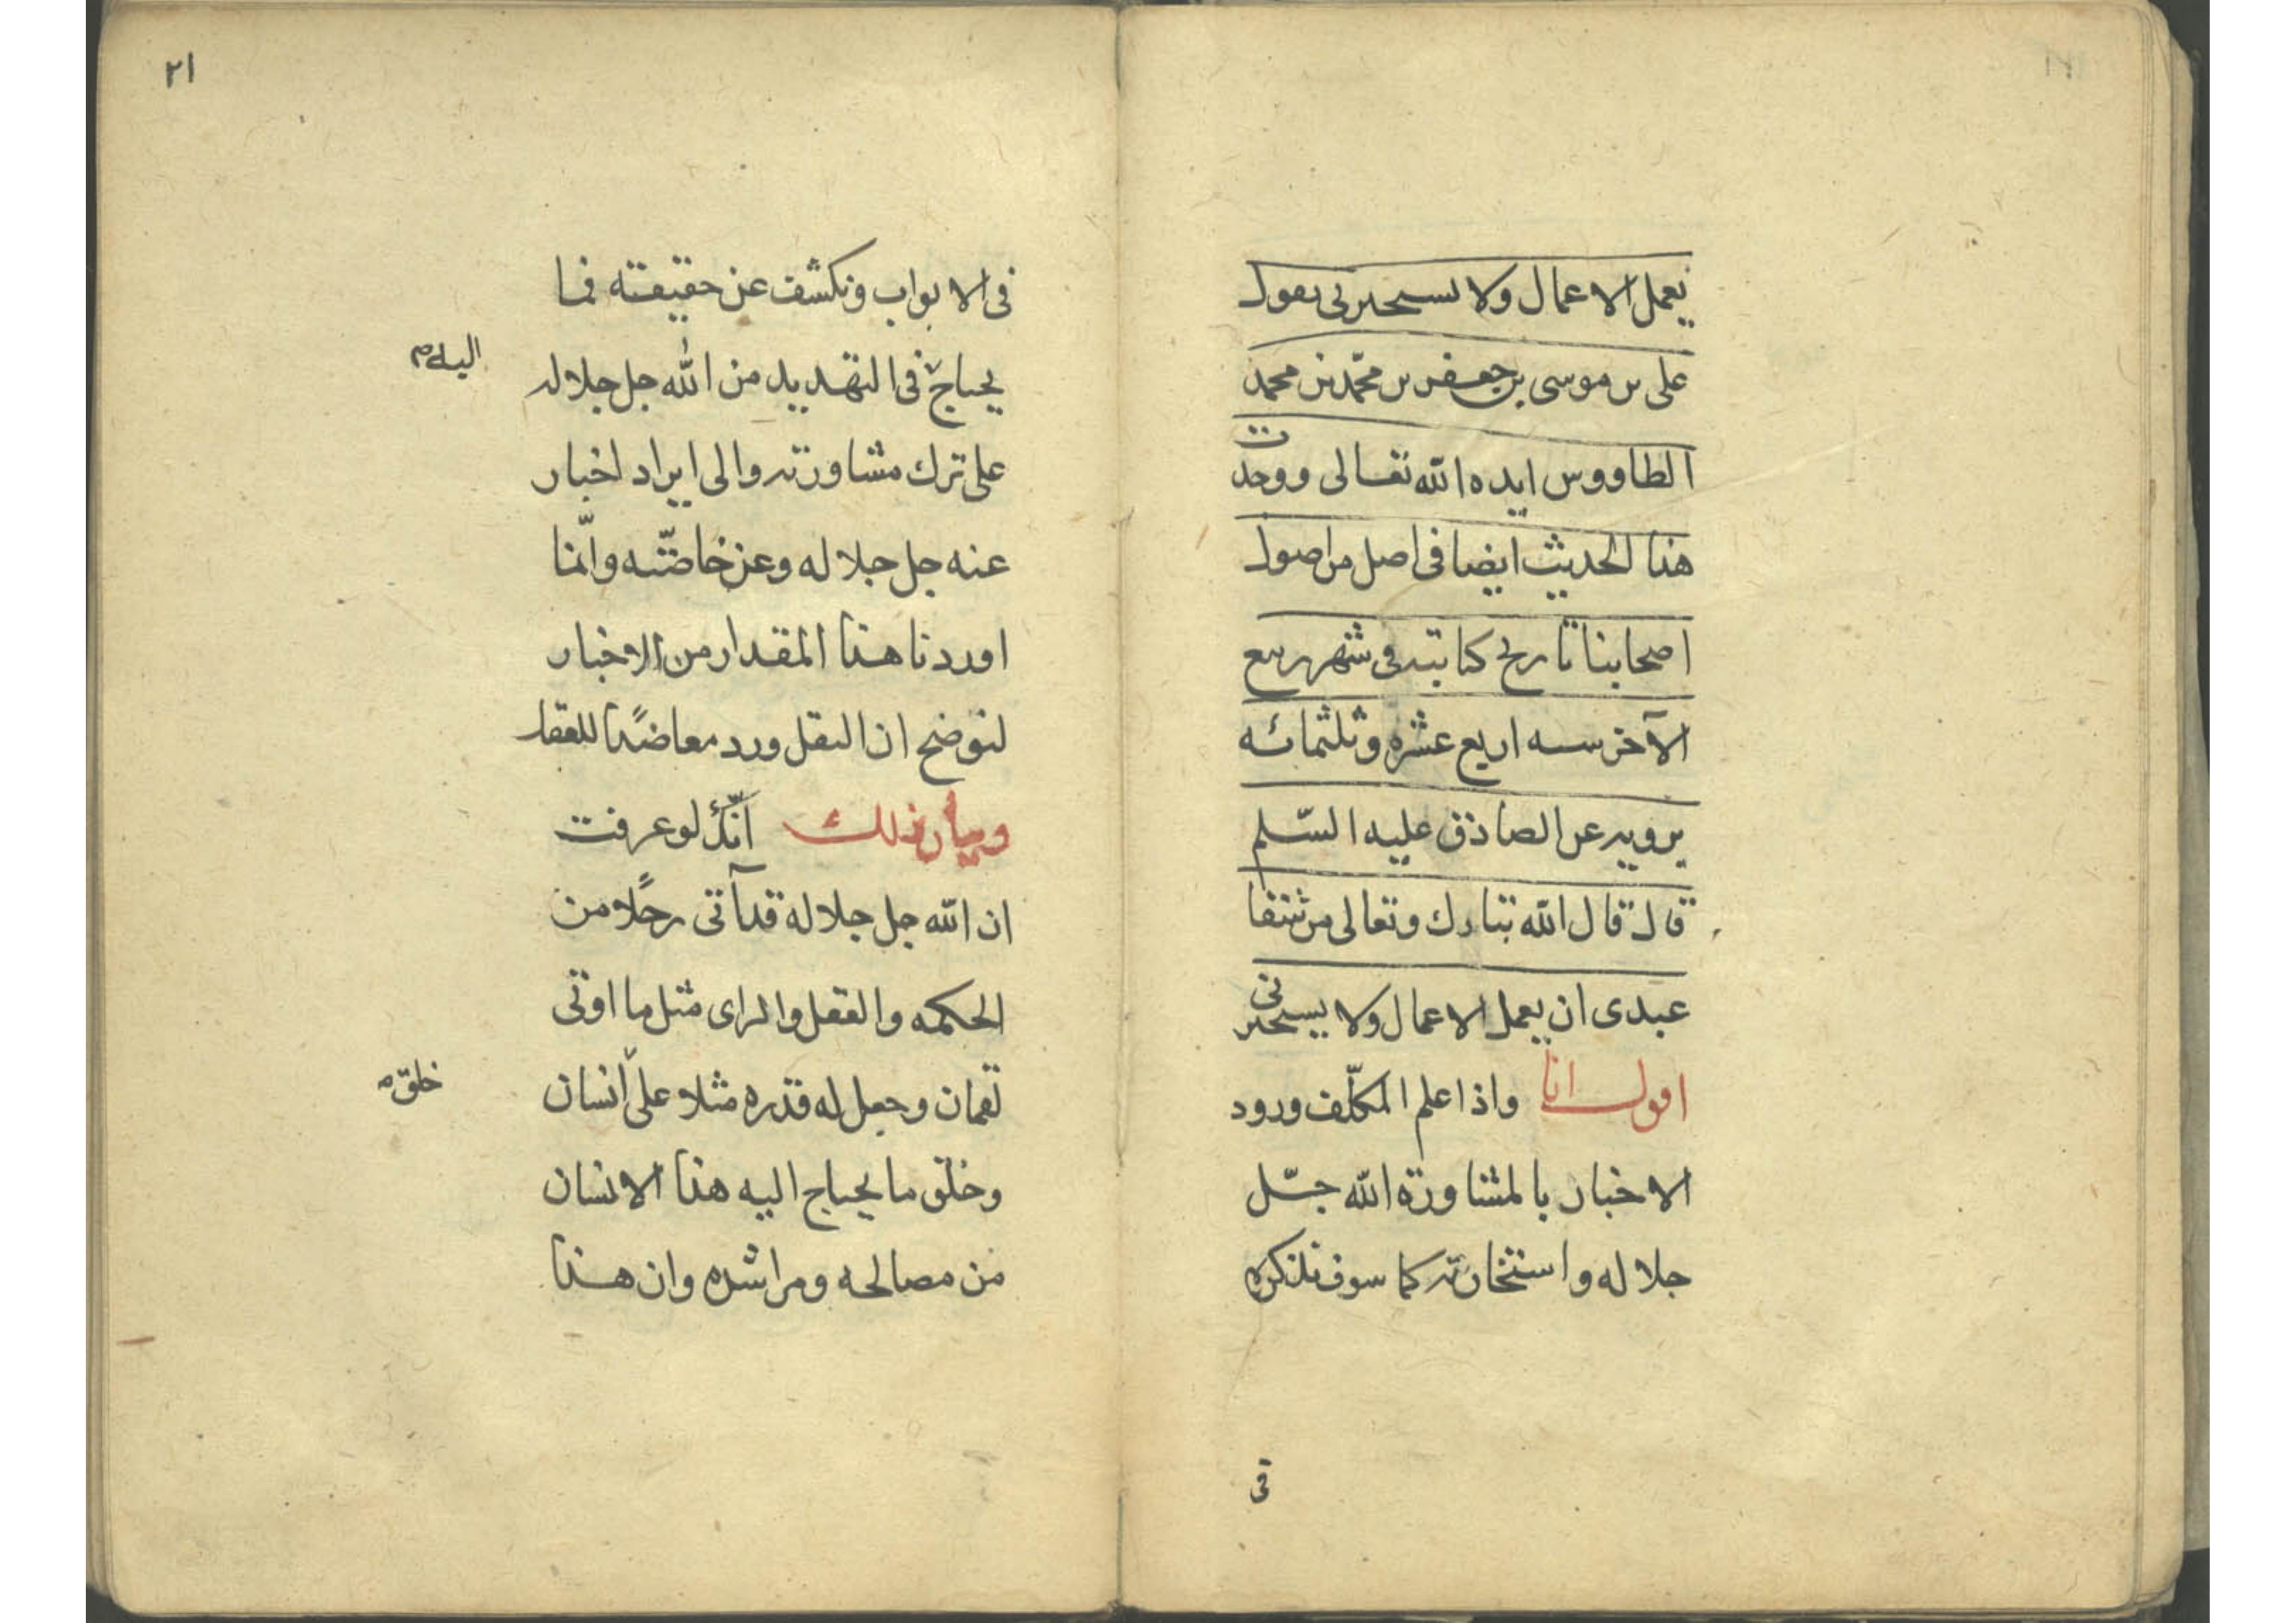 يعمل الاعمال ولا يستخيرنى يقول
على بن موسى بن جعفر بن محمّد بن محمد
الطاووس ايده الله تعالى ووجدت
هذا الحديث ايضا فى اصل من اصول
اصحابنا تاريخ كتابته فى شهر ربيع
الآخر سنه اربع عشره وثلثمائه
يرويه عن الصادق عليه السّلم
قال قال الله تبارك وتعالى من شقا
عبدى ان يعمل الاعمال ولا يستخيرنى
اقول انا واذا علم المكلّف ورود
الاخبار بالمشاورة الله جّل
جلاله واستخارته كما سوف نذكره
فى
٢١
فى الابواب ونكشف عن حقيقته فما
يحتاج فى التهديد من الله جل جلاله
اليه م
على ترك مشاورته والى ايراد اخبار
عنه جل جلاله وعن خاصّته وانّما
اوردنا هذا المقدار من الاخبار
لنوضح ان النقل ورد معاضدًا للعقل
وبيان ذلك انّك لو عرفت
ان الله جل جلاله قد آتى رجلًا من
الحكمه والعقل والراى مثل ما اوتى
لقمان وجعل له قدره مثلا على انسان
خلق م
وخلق ما يحتاج اليه هذا الانسان
من مصالحه ومراشده وان هذا